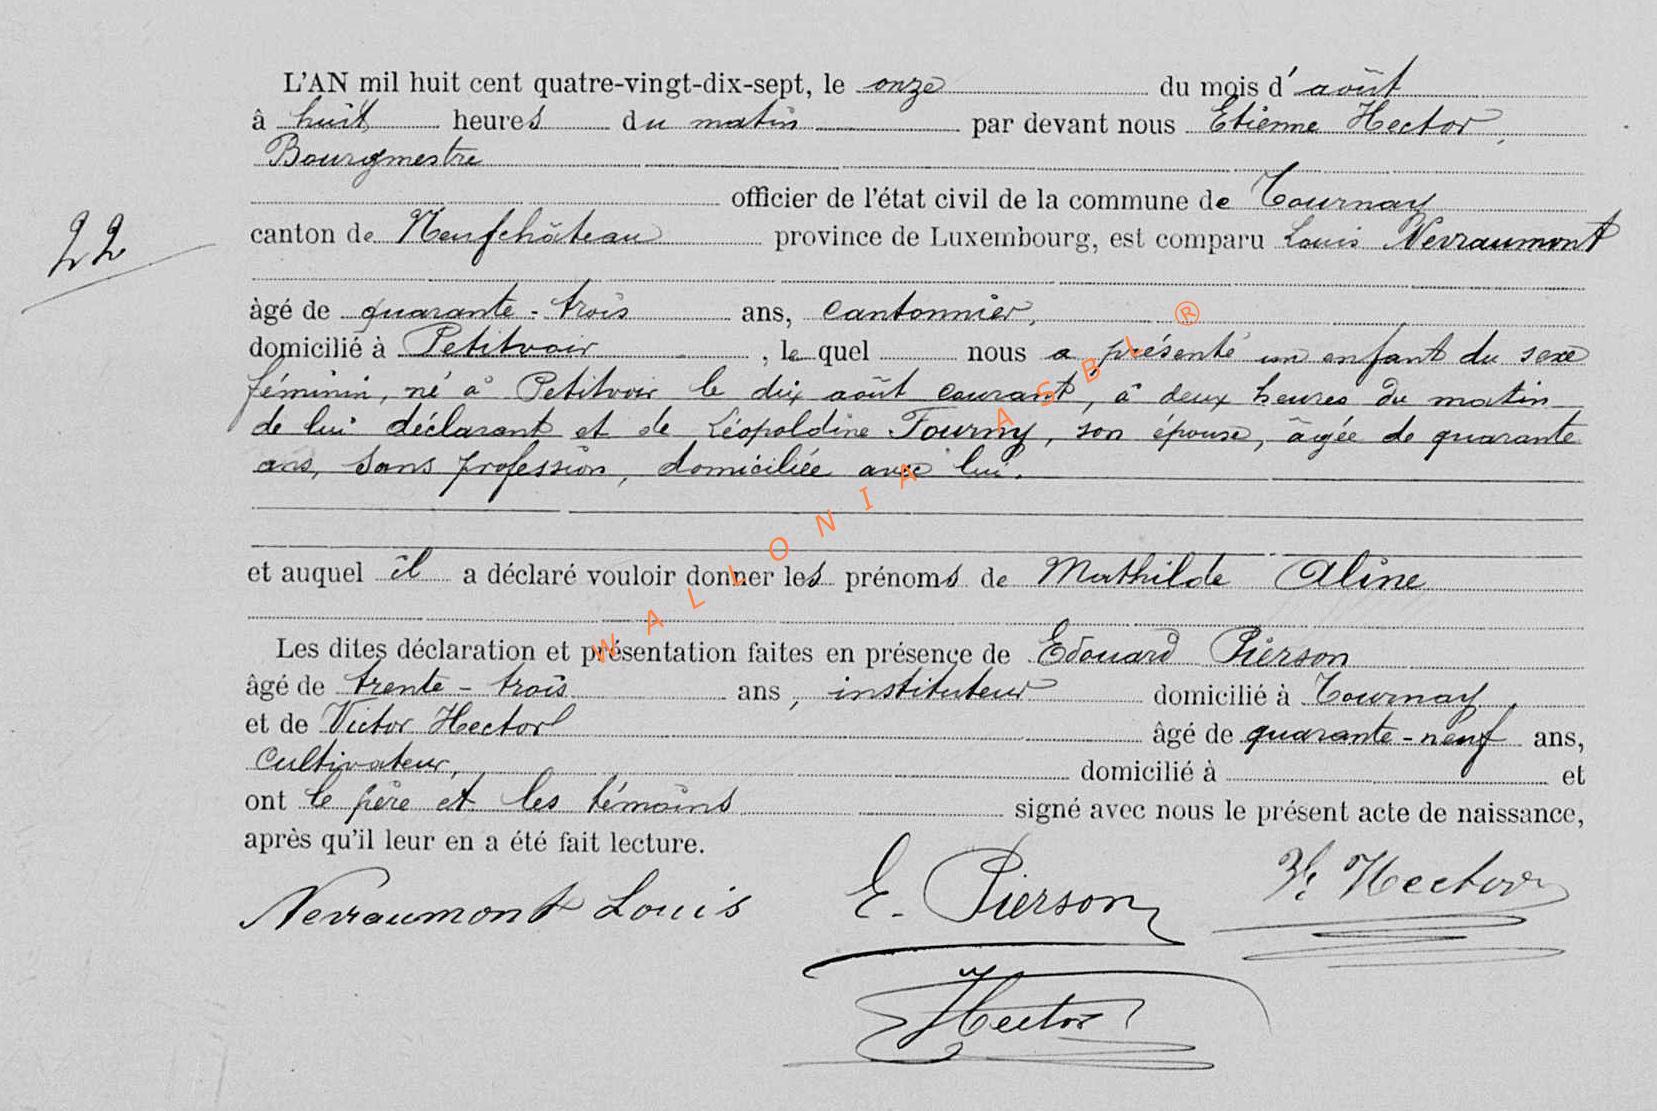 L'AN mil huit cent quatre-vingt-dix-sept, le onze du mois d'août
à huit heures du matin par devant nous Etienne Hector,
Bourgmestre
officier de l'état civil de la commune de Tournay
22
canton de Neufchâteau province de Luxembourg, est comparu Louis Nevraumont
àgé de quarante-trois ans, cantonnier,
domicilié à Petitvoir, le quel nous a présenté un enfant du sexe
féminin, né à Petitvoir le dix août courant, à deux heures du matin
de lui déclarant et de Léopoldine Fourny, son épouse, âgée de quarante
ans, sans profession, domiciliée avec lui.
et auquel il a déclaré vouloir donner les prénoms de Mathilde Aline
Les dites déclaration et présentation faites en présence de Edouard Pierson
âgé de trente-trois ans, instituteur domicilié à Tournay
et de Victor Hector âgé de quarante-neuf ans,
cultivateur, domicilié à et
ont le père et les témoins signé avec nous le présent acte de naissance,
après qu'il leur en a été fait lecture.
Nevraumont Louis E. Pierson V. Hector
Hector
WALLONIA ASBL ®